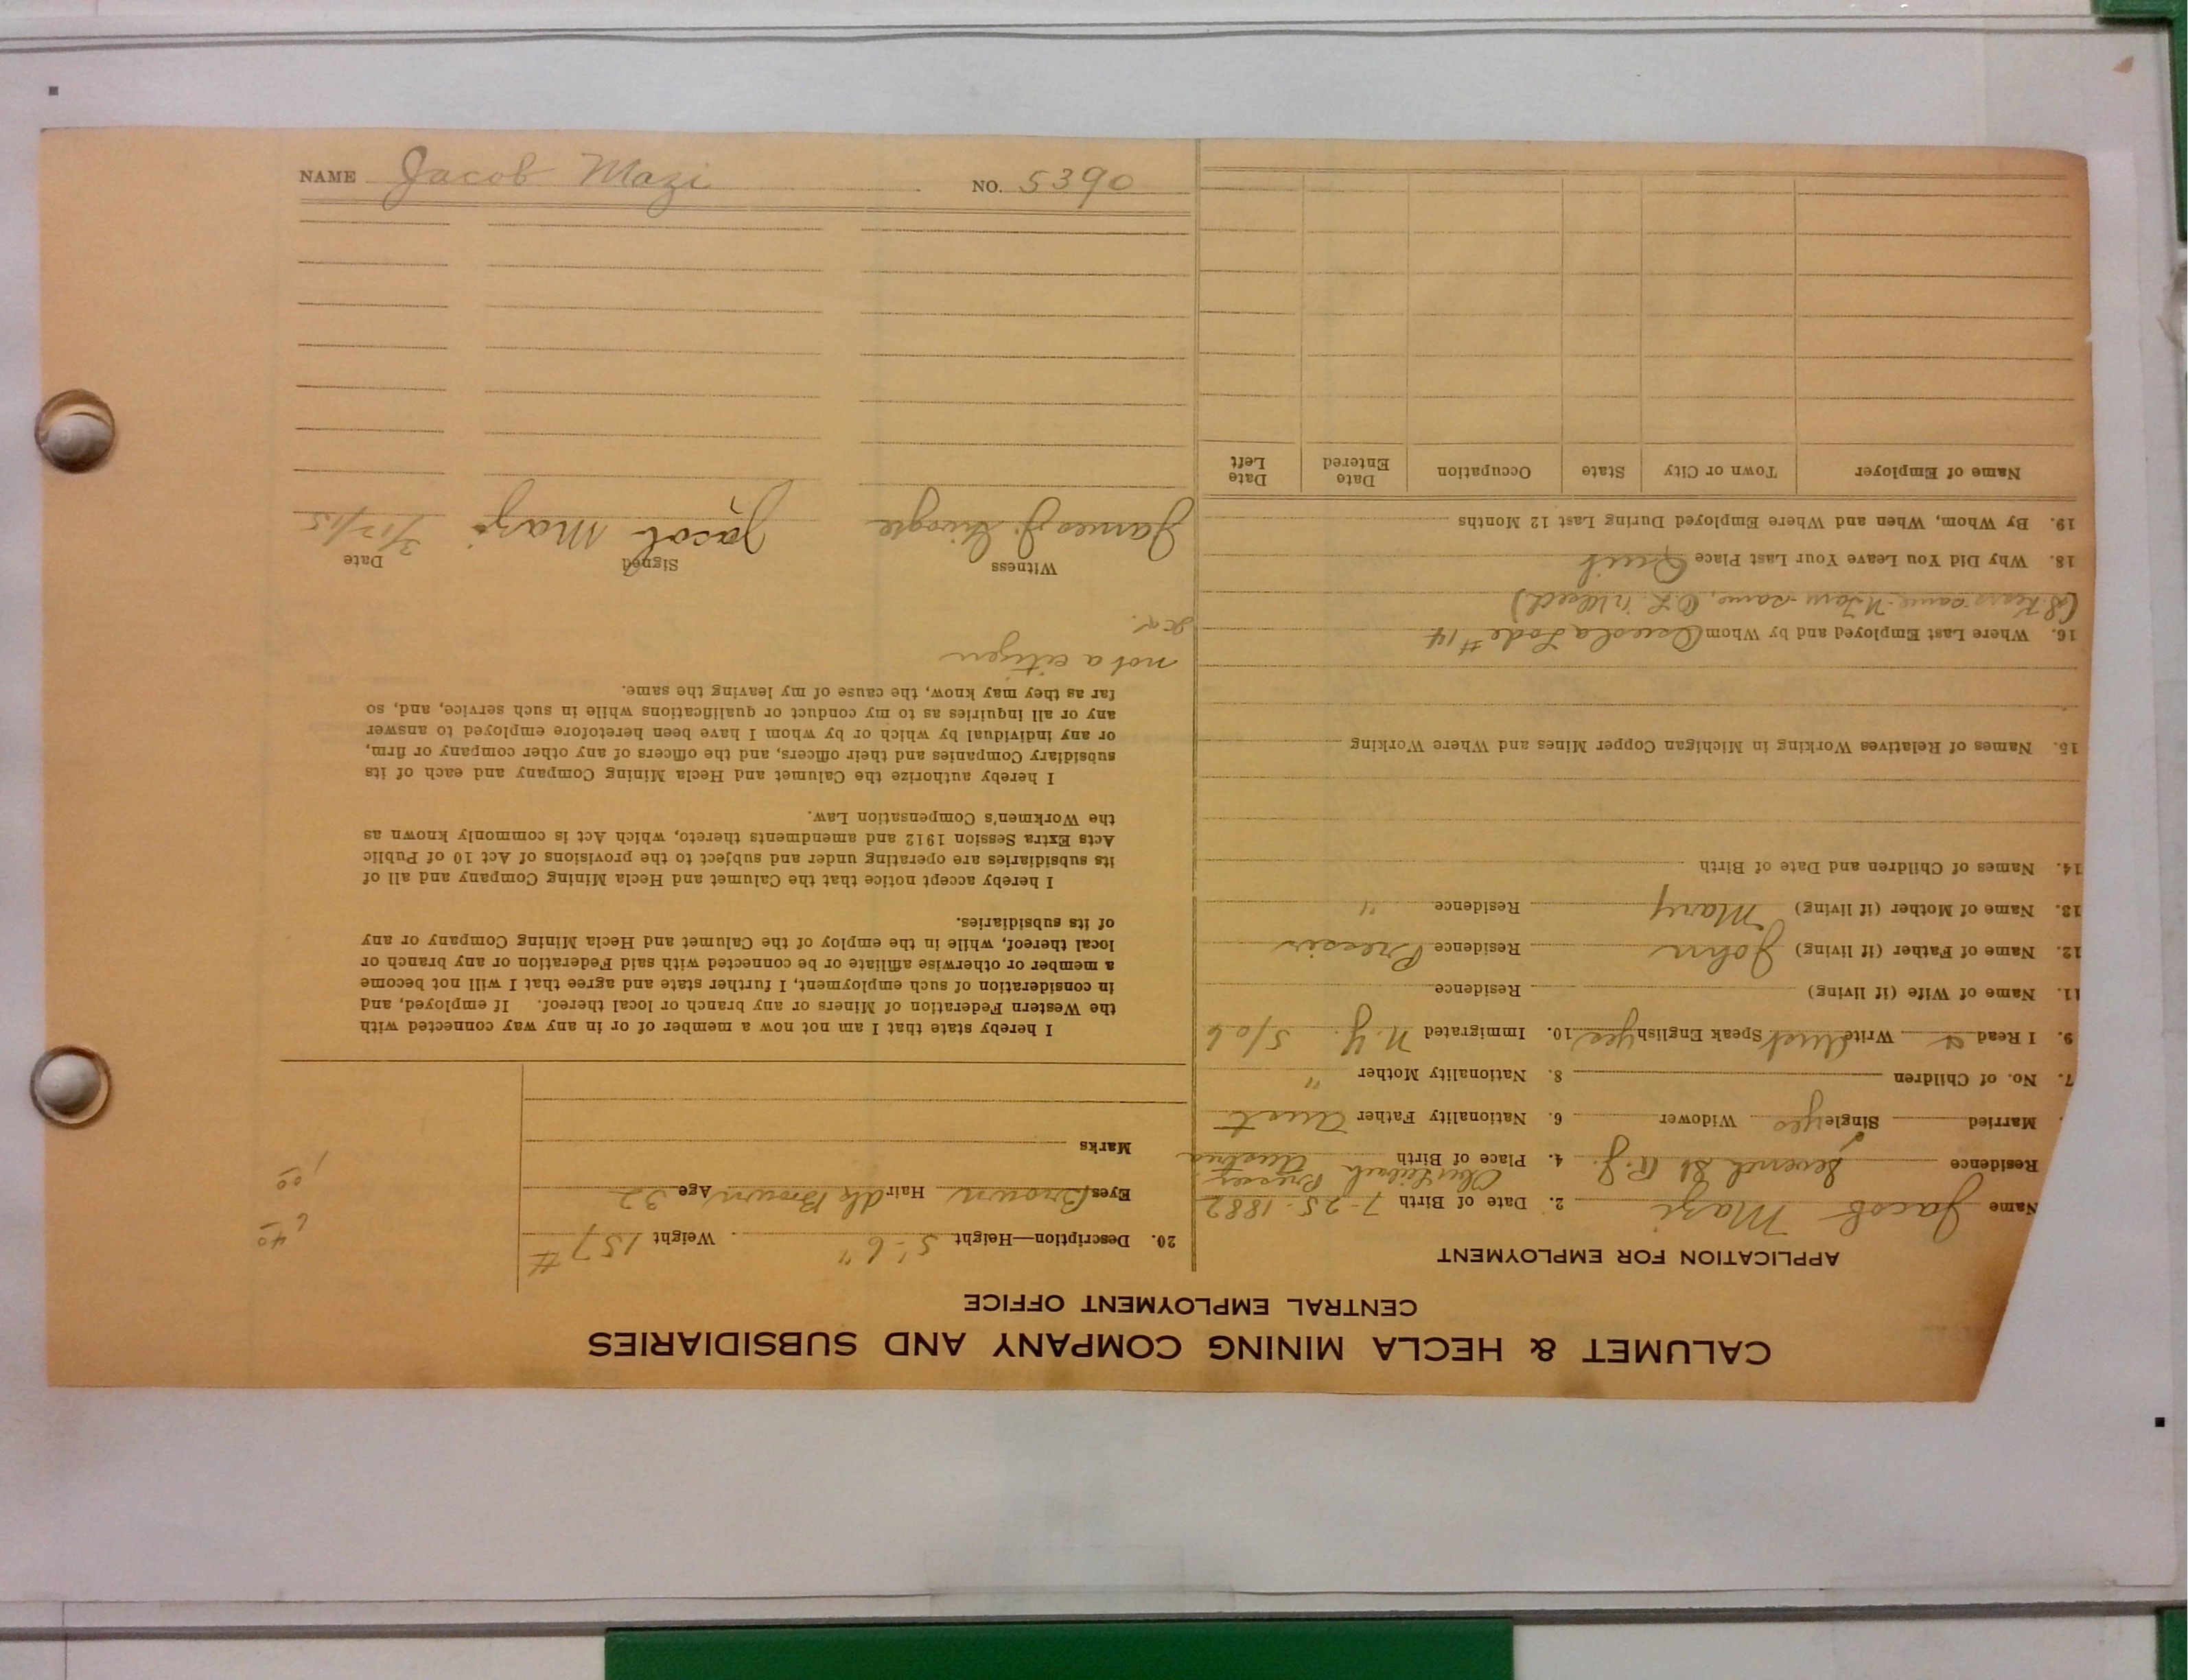 CALUMET & HECLA MINING COMPANY AND SUBSIDIARIES
CENTRAL EMPLOYMENT OFFICE
APPLICATION FOR EMPLOYMENT
Name Jacob Mazi 2. Date of Birth 7-25-1882
Residence Seventh St R.J. 4. Place of Birth Austria
Married Single yes Widower 6. Nationality Father Aust
7. No. of Children 8. Nationality Mother "
9. I Read & Write Aust Speak English yes 10. Immigrated N.Y. 5/06
11. Name of Wife (if living) Residence
12. Name of Father (if living) John Residence
13. Name of Mother (if living) Mary Residence "
14. Names of Children and Date of Birth
15. Names of Relatives Working in Michigan Copper Mines and Where Working
16. Where Last Employed and by Whom Osceola Lode #14
18. Why Did You Leave Your Last Place Quit
19. By Whom, When and Where Employed During Last 12 Months
Name of Employer Town or City State Occupation Date Entered Date Left
20. Description—Height 5'-6" Weight 157 #
Eyes Brown Hair dk Brown Age 32
Marks
I hereby state that I am not now a member of or in any way connected with
the Western Federation of Miners or any branch or local thereof. If employed, and
in consideration of such employment, I further state and agree that I will not become
a member or otherwise affiliate or be connected with said Federation or any branch or
local thereof, while in the employ of the Calumet and Hecla Mining Company or any
of its subsidiaries.
I hereby accept notice that the Calumet and Hecla Mining Company and all of
its subsidiaries are operating under and subject to the provisions of Act 10 of Public
Acts Extra Session 1912 and amendments thereto, which Act is commonly known as
the Workmen's Compensation Law.
I hereby authorize the Calumet and Hecla Mining Company and each of its
subsidiary Companies and their officers, and the officers of any other company or firm,
or any individual by which or by whom I have been heretofore employed to answer
any or all inquiries as to my conduct or qualifications while in such service, and, so
far as they may know, the cause of my leaving the same.
not a citizen
Witness Signed Date
James J. Jacob Mazi 3/12/15
NAME Jacob Mazi NO. 5390